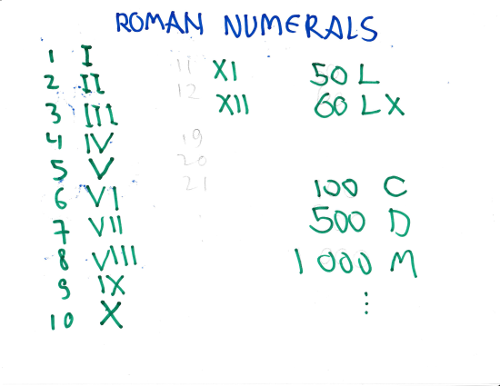 ROMAN NUMERALS
1 I
2 II
3 III
4 IV
5 V
6 VI
7 VII
8 VIII
9 IX
10 X
11 XI
12 XII
19
20
21
50 L
60 LX
100 C
500 D
1000 M
⋮